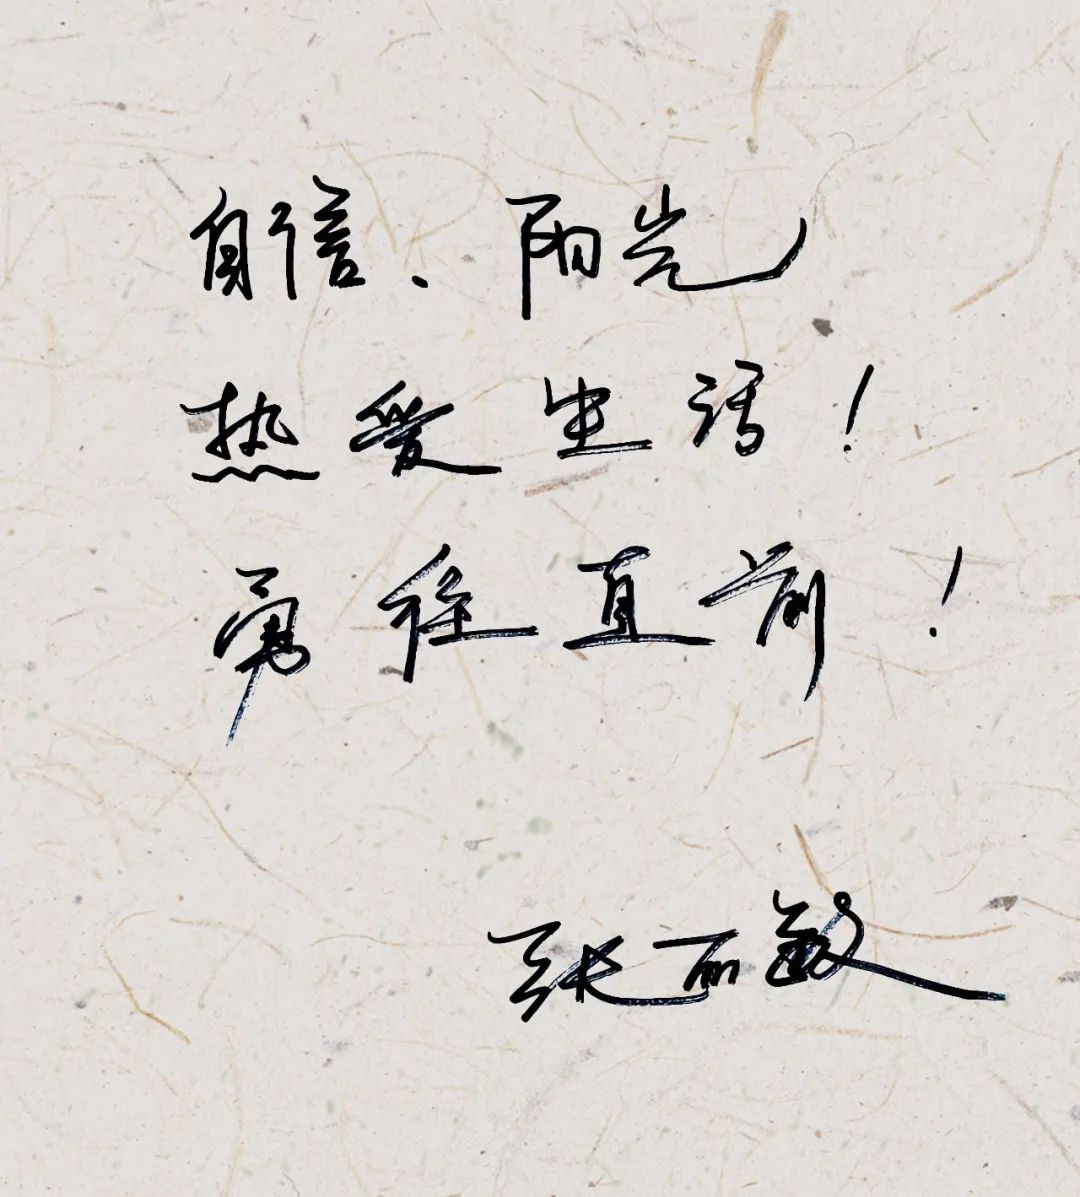 自信、阳光
热爱生活!
勇往直前!
张丽敏